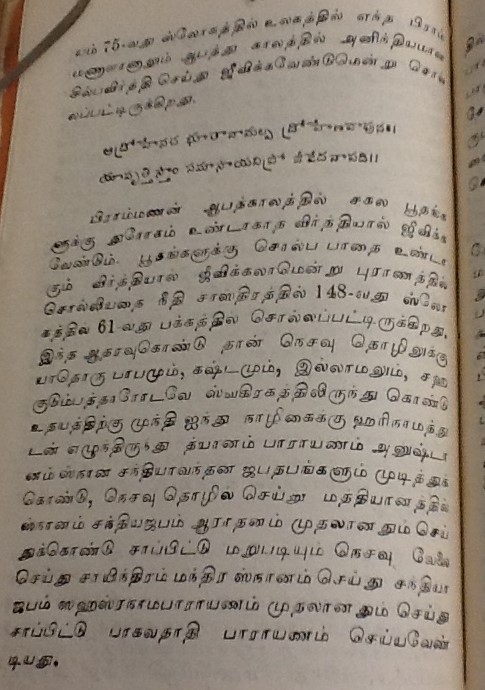 யம் 75-வது ஸ்லோகத்தில் உலகத்தில் எந்த பிராம்
மணனானாலும் ஆபத்து காலத்தில் அனிந்தியமான
சில்பவிர்த்தி செய்து ஜீவிக்கவேண்டுமென்று சொல்
லப்பட்டிருக்கிறது.
பிராம்மணன் ஆபத்காலத்தில் சகல பூதங்க
ளுக்கு துரோகம் உண்டாகாத விர்த்தியால் ஜீவிக்க
வேண்டும். பூதங்களுக்கு சொல்ப பாதை உண்டா
கும் விர்த்தியால் ஜீவிக்கலாமென்று புராணத்தில்
சொல்லியதை நீதி சாஸதிரத்தில் 148-வது ஸ்லோ
கத்தில் 61-வது பக்கத்தில் சொல்லப்பட்டிருக்கிறது.
இந்த ஆதரவுகொண்டு தான் நெசவு தொழிலுக்கு
யாதொரு பாபமும், கஷ்டமும், இல்லாமலும், சக
குடும்பத்தாரோடவே ஸ்வகிரகத்திலிருந்து கொண்டு
உதயத்திற்கு முந்தி ஐந்து நாழிகைக்கு ஹரிநாமத்து
டன் எழுந்திருந்து த்யானம் பாராயணம் அனுஷ்டா
னம் ஸ்நான சந்தியாவந்தன ஜபதபங்களும் முடித்துக்
கொண்டு, நெசவு தொழில் செய்து மத்தியானத்தில்
ஸ்நானம் சந்தியஜபம் ஆராதனம் முதலானதும் செய்
துக்கொண்டு சாப்பிட்டு மறுபடியும் நெசவு வேலை
செய்து சாயிந்திரம் மந்திர ஸ்நானம் செய்து சந்தியா
ஜபம் ஸஹஸ்ரநாமபாராயணம் முதலானதும் செய்து
சாப்பிட்டு பாகவதாதி பாராயணம் செய்யவேண்
டியது.